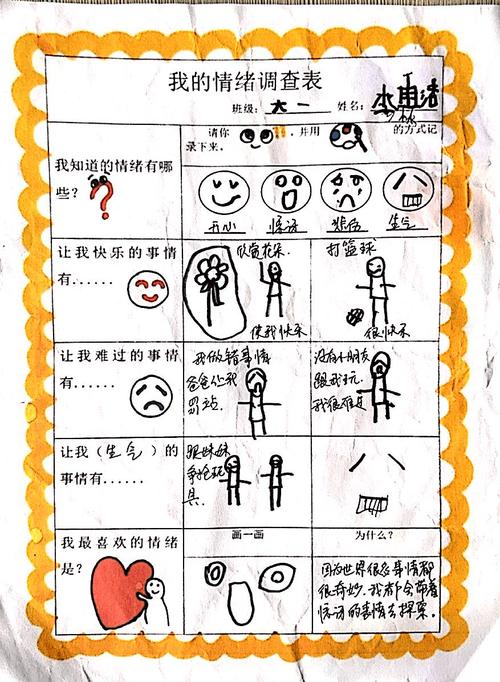 我的情绪调查表
班级: 大一 姓名:
我知道的情绪有哪些?
请你 ，并用 的方式记录下来。
开心 惊讶 悲伤 生气
让我快乐的事情有......
欣赏花朵
使我快乐
打篮球
很快乐
让我难过的事情有......
我做错事情
爸爸让我
罚站
没有小朋友
跟我玩
我很难过
让我（生气）的
事情有......
跟妹妹
争抢玩
具
我最喜欢的情绪
是?
画一画
为什么?
因为世界很多事情都
很奇妙.我都会带着
惊讶的表情去探索.